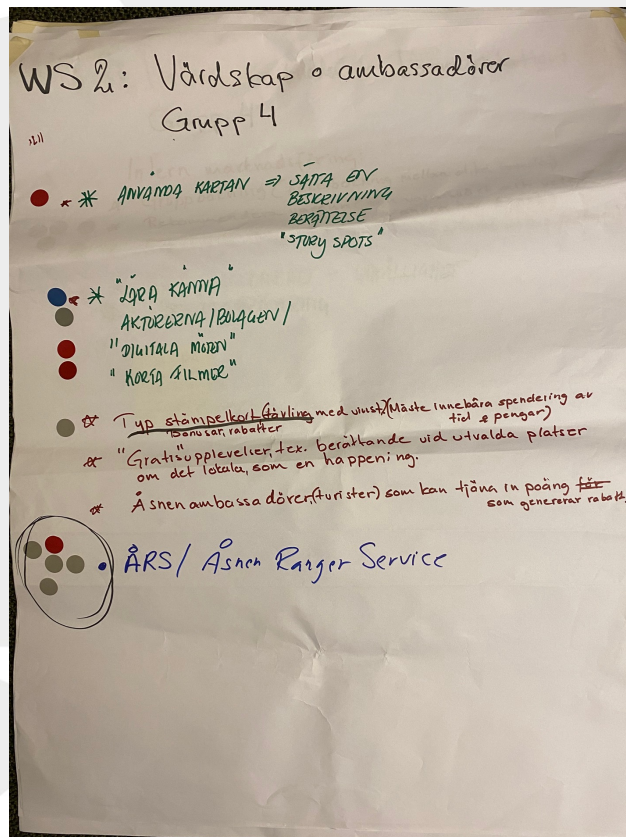 WS 2: Värdskap o ambassadörer
Grupp 4
* ANVÄNDA KARTAN ⇒ SÄTTA EN
BESKRIVNING
BERÄTTELSE
"STORY SPOTS"
* "LÄRA KÄNNA"
AKTÖRERNA/BOLAGEN/
"DIGITALA MÖTEN"
"KORTA FILMER"
* Typ stämpelkort (tävling med vinst) (Måste innebära spendering av
tid & pengar)
Bonusar, rabatter
* "Gratis"upplevelser, t.ex. berättande vid utvalda platser
om det lokala, som en happening.
* Åsnenambassadörer, (turister) som kan tjäna in poäng för
som genererar rabatt
• ÅRS / Åsnen Ranger Service